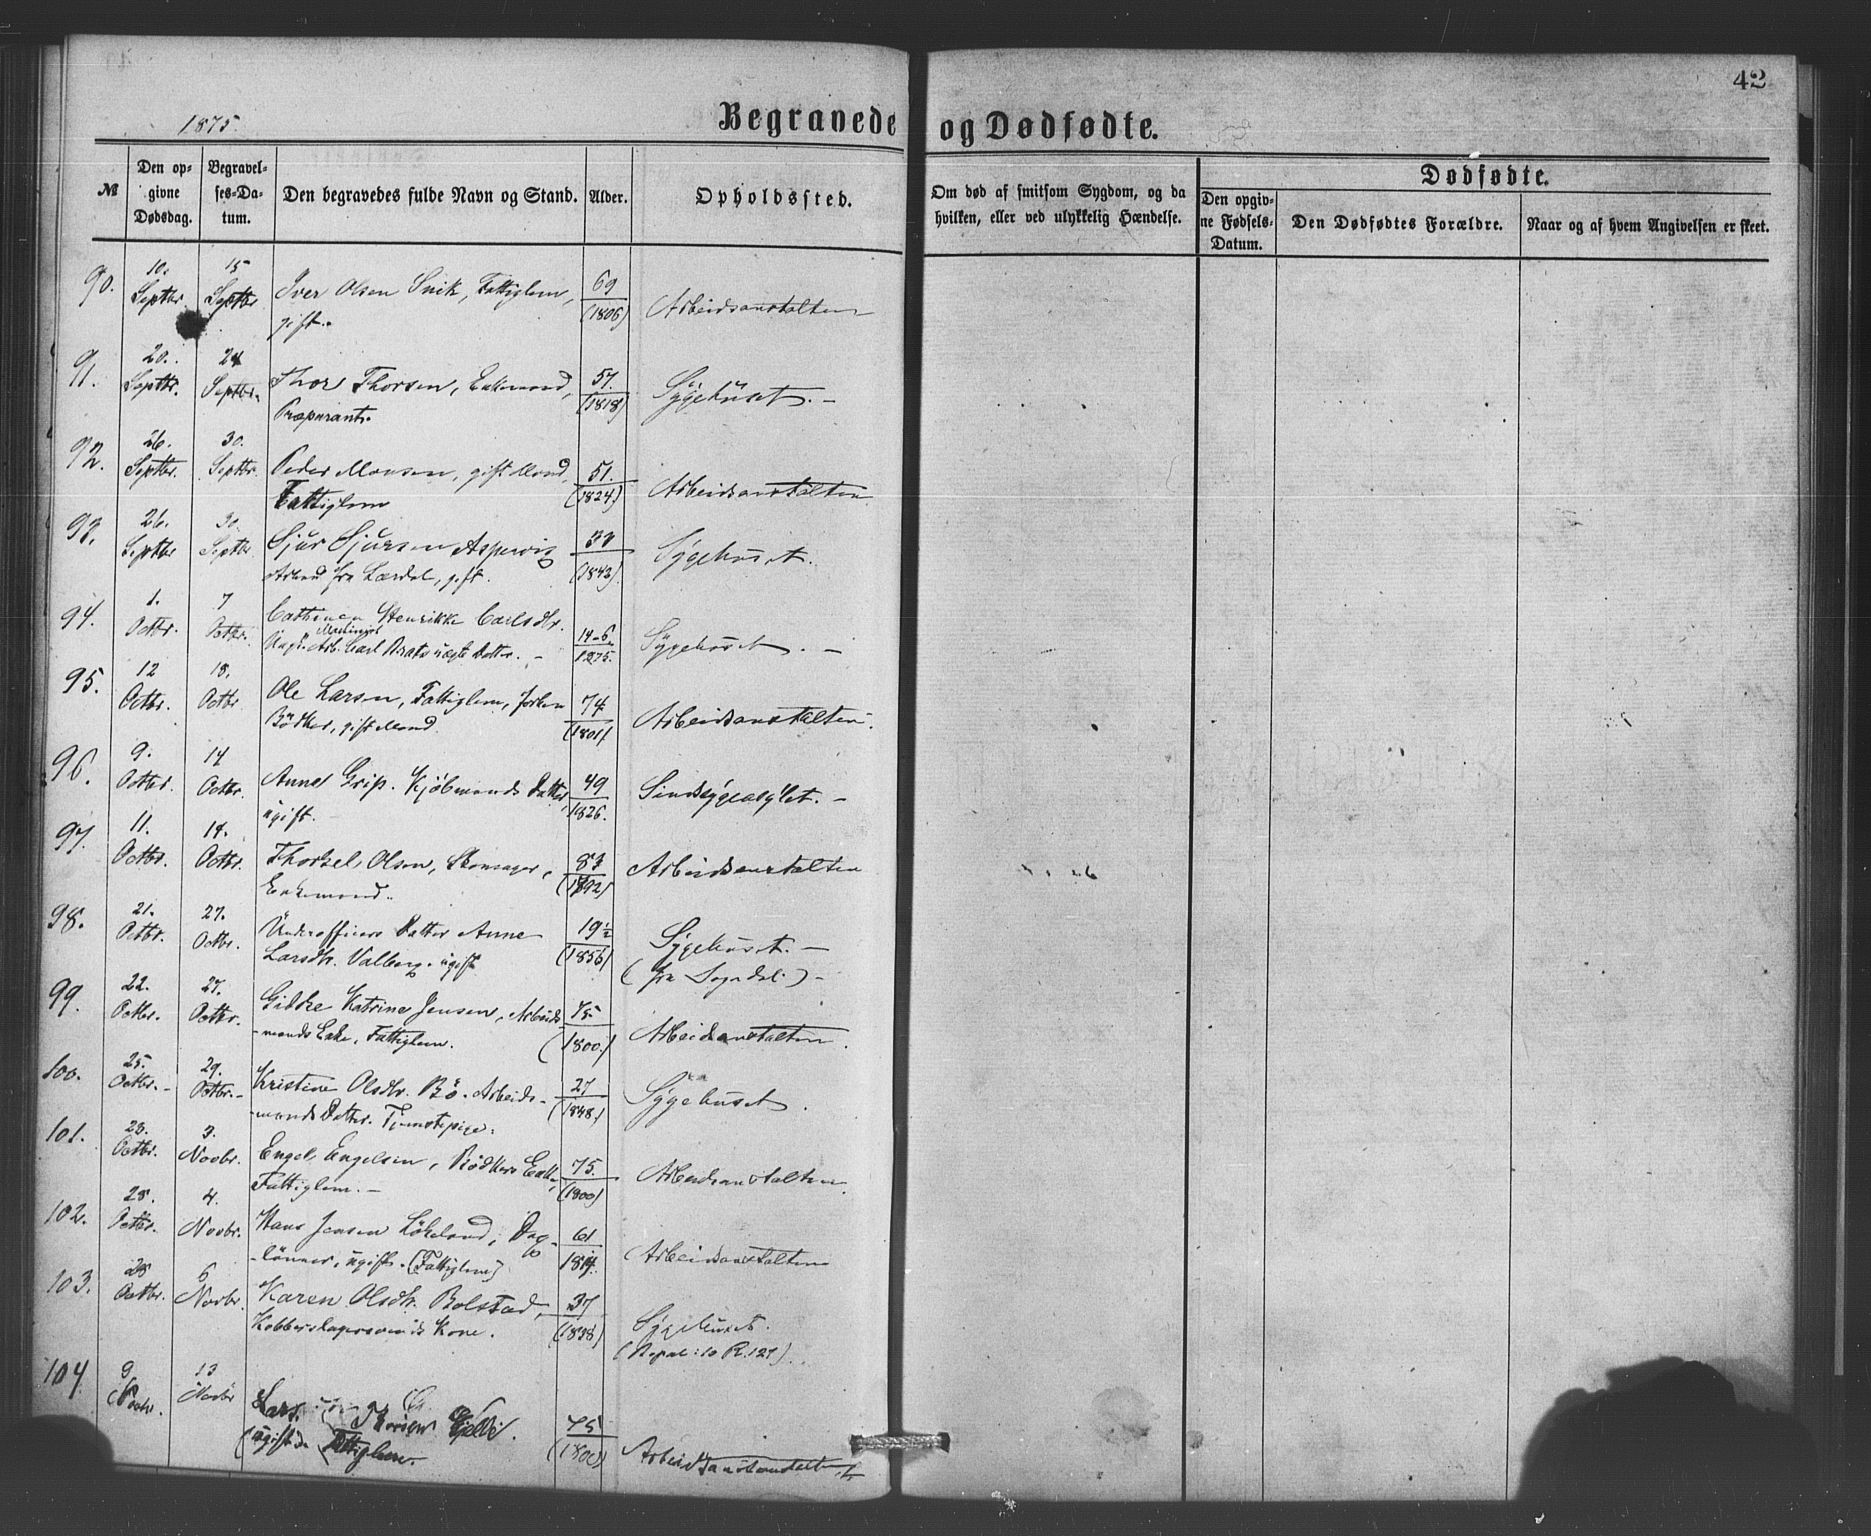 42
1875.
Begravede og Dødfødte.
№
Den opgivne Dødsdag.
Begravelses-Datum.
Den begravedes fulde Navn og Stand.
Alder.
Opholdssted.
Om død af smitsom Sygdom, og da hvilken, eller ved ulykkelig Hændelse.
Dødfødte.
Den opgivne Fødsels-Datum.
Den Dødfødtes Forældre.
Naar og af hvem Angivelsen er skeet.
90. 10. Septbr. 15 Septbr Iver Olsen Snik, Fattiglem, 69
gift. (1806) Arbeidsanstalten
91. 20. Septbr. 24 Septbr. Thor Thorsen, Enkemand, 57.
Præparant. (1818) Sygehuset. -
92. 26. Septbr. 30. Septbr. Peder Monsen, gift Mand, 51.
Fattiglem (1824) Arbeidsanstalten
93. 26. Septbr 30. Septbr. Sjur Sjursen Aspevig
Arbmd fra Lærdal, gift. (1843) Sygehuset.
94. 1. Octbr. 7 Octbr. Henrikke Carlsdtr. 14-6
Maskinist
Arb. Carl ægte Datter. - 1275. Sygehuset. -
95. 12 Octbr. 18. Octbr. Ole Larsen, Fattiglem, 74
Bödker, gift Mand. (1801) Arbeidsanstalten.
96. 9. Octbr. 14 Octbr. Anne Grip. Kjöbmands Datter, 49
ugift. 1826. Sindsygeasylet. -
97. 11. Octbr. 14. Octbr. Thorkel Olsen, Skomager, 83
Enkemand. (1792) Arbeidsanstalten
98. 21. Octbr. 27. Octbr. Underofficers Datter Anne 19½
Larsdtr. Valberg. ugift (1856) Sygehuset. -
(fra Sogndal.) -
99. 22. Octbr. 27. Octbr. Katrine Jensen, Arbeids- 75
-mands Enke, Fattiglem. (1800.) Arbeidsanstalten.
100. 25. Octbr. - 29. Octbr. - Kristine Olsdtr. Bö. Arbeids- 27
-mands Datter. Tjenestepige. (1848.) Sygehuset.
101. 23. Octbr. 3. Novbr. Engel Engelsen, Bödkers Enke, 75.
Fattiglem. - (1800) Arbeidsanstalten.
102. 28. Octbr. 4. Novbr. Hans Jensen Lökeland, Dag- 61
-lönner, ugift. (Fattiglem) 1814. Arbeidsanstalten
103. 28 Octbr. 6 Novbr. Karen Olsdtr. Bolstad, 37
Kobberslagersvends Kone. (1838) Sygehuset.
(Nepal: 10 R. 127).
104. 9. Novbr. 13 Novbr Lars 75
ugift Fattiglem. (1800) Arbeidsanstalten